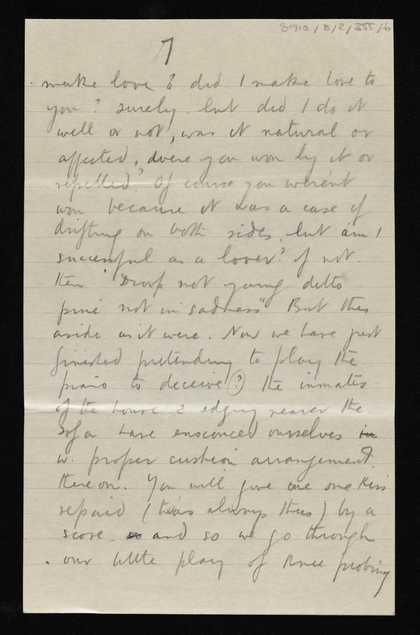 8910/B/2/355/6
7
make love? did I make love to
you? surely. but did I do it
well or not, was it natural or
affected, were you won by it or
repelled? Of course you weren't
won because it was a case of
drifting on both sides, but am I
successful as a lover? if not
then "Droop not young
pine not in sadness" But this
aside as it were. Now we have just
finished pretending to play the
piano to deceive (?) the inmates
of the house & edging nearer the
sofa have ensconced ourselves in
w. proper cushion arrangement
thereon. You will give me one kiss
repaid (twas always thus) by a
score and so we go through
our little play of knee probing